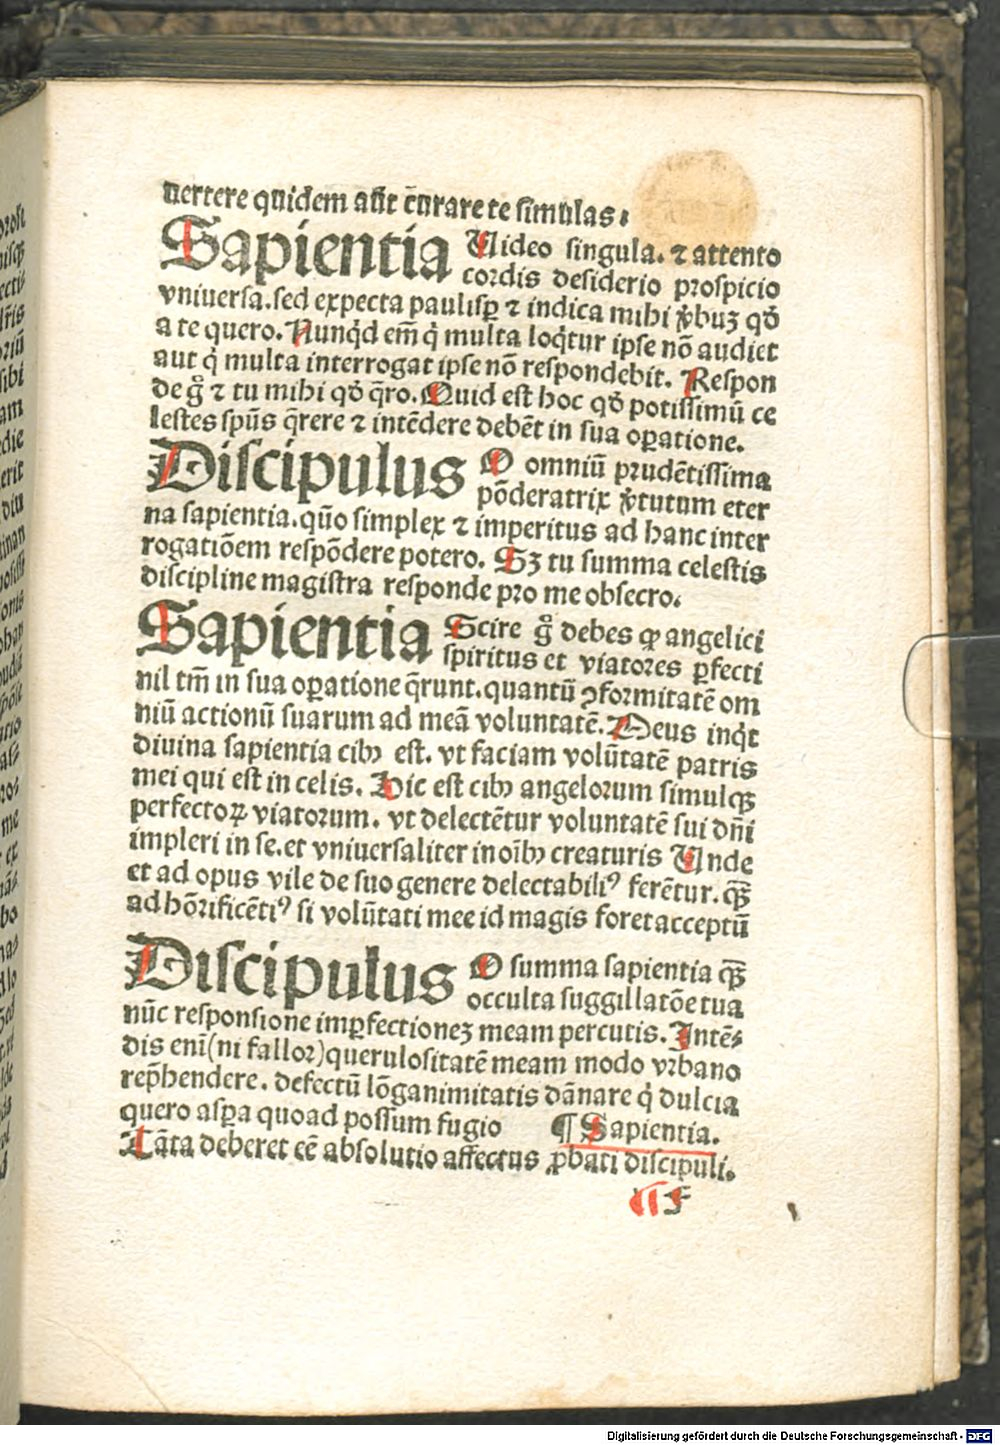 vertere quidem aūt c̄urare te simulas.
Sapientia Uideo singula. ⁊ attento
cordis desiderio prospicio
vniuersa. sed expecta paulisꝑ ⁊ indica mihi ꝟbuʒ qḋ
a te quero. Nunqd̓ em̄ q̇ multa loq̇tur ipse nō audiet
aut q̇ multa interrogat ipse nō respondebit. Respon
de gͦ ⁊ tu mihi qḋ q̄ro. Quid est hoc qḋ potissimū ce
lestes spūs q̄rere ⁊ intēdere debēt in sua oꝑatione.
Discipulus O omniū prudētissima
pōderatrix ꝟtutum eter
na sapientia. quō simplex ⁊ imperitus ad hanc inter
rogatiōem respōdere potero. Sʒ tu summa celestis
discipline magistra responde pro me obsecro.
Sapientia Scire gͦ debes ꝙ angelici
spiritus et viatores ꝑfecti
nil tm̄ in sua oꝑatione q̄runt. quantū ꝯformitatē om
niū actionū suarum ad meā voluntatē. Meus inq̇t
diuina sapientia cibꝰ est. vt faciam volūtatē patris
mei qui est in celis. Hic est cibꝰ angelorum simulqꝫ
perfectoꝝ viatorum. vt delectētur voluntatē sui dn̄i
impleri in se. et vniuersaliter in oībꝰ creaturis Unde
et ad opus vile de suo genere delectabiliꝰ ferētur. qꝫ
ad hōrificētiꝰ si volūtati mee id magis foret acceptū
Discipulus O summa sapientia qꝫ
occulta suggillatōe tua
nūc responsione imꝑfectioneʒ meam percutis. Intē⸗
dis enī (ni fallor) querulositatē meam modo vrbano
rep̄hendere. defectū lōganimitatis dānare q̇ dulcia
quero asꝑa quoad possum fugio ¶ Sapientia.
Tāta deberet eē absolutio affectus ꝓbati discipuli.
f
Digitalisierung gefördert durch die Deutsche Forschungsgemeinschaft - DFG